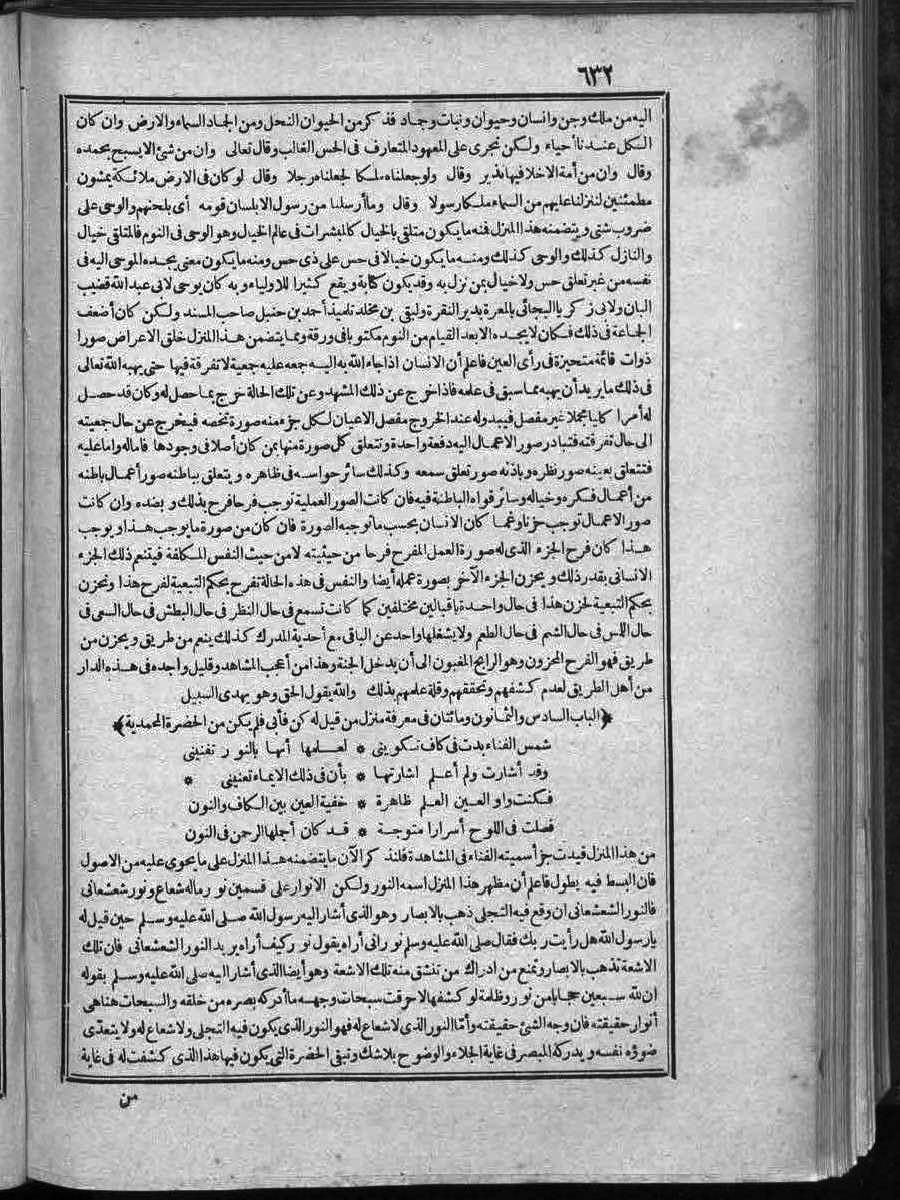 ٦٣٢
اليه من ملك وجن وانسان وحيوان ونبات وجماد فذكر من الحيوان النحل ومن الجماد السماء والارض وان كان
الكل عندنا أحياء ولكن نجرى على المعهود المتعارف فى الحس الغالب وقال تعالى وان من شئ الا يسبح بحمده
وقال وان من أمة الا خلا فيها نذير وقال ولو جعلناه ملكا لجعلناه رجلا وقال لو كان فى الارض ملائكة يمشون
مطمئنين لنزلنا عليهم من السماء ملكا رسولا وقال وما أرسلنا من رسول الا بلسان قومه أى بلحنهم والوحى على
ضروب شتى ويتضمنه هذا المنزل فمنه ما يكون متلقى بالخيال كالمبشرات فى عالم الخيال وهو الوحى فى النوم فالمتلقى خيال
والنازل كذلك والوحى كذلك ومنه ما يكون خيالا فى حس على ذى حس ومنه ما يكون معنى يجده الموحى اليه فى
نفسه من غير تعلق حس ولا خيال بمن نزل به وقد يكون كتابة ويقع كثيرا للاولياء وبه كان يوحى لابى عبد الله قضيب
البان ولابى زكريا البجائى بالمعرة بدير النقرة ولبقى بن مخلد تلميذ أحمد بن حنبل صاحب المسند ولكن كان أضعف
الجماعة فى ذلك فكان لا يجده الا بعد القيام من النوم مكتوبا فى ورقة ومما يتضمن هذا المنزل خلق الاعراض صورا
ذوات قائمة متحيزة فى رأى العين فاعلم أن الانسان اذا جاء الله به اليه جمعه عليه جمعية لا تفرقة فيها حتى يهبه الله تعالى
فى ذلك ما يريد أن يهبه مما سبق فى علمه فاذا خرج عن ذلك المشهد وعن تلك الحالة خرج بما حصل له وكان قد حصل
له أمرا كليا مجملا غير مفصل فيبدو له عند الخروج مفصل الاعيان لكل جزء منه صورة تخصه فيخرج عن حال جمعيته
الى حال تفرقته فتبادر صور الاعمال اليه دفعة واحدة وتتعلق كل صورة منها بمن كان أصلا فى وجودها فاماله واما عليه
فتتعلق بعينه صور نظره وباذنه صور تعلق سمعه وكذلك سائر حواسه فى ظاهره ويتعلق بباطنه صور أعمال باطنه
من أعمال فكره وخياله وسائر قواه الباطنة فيه فان كانت الصور العملية توجب فرحا فرح بذلك وبضده وان كانت
صور الاعمال توجب حزنا وغما كان الانسان بحسب ما توجبه الصورة فان كان من صورة ما يوجب هذا ويوجب
هذا كان فرح الجزء الذى له صورة العمل المفرح فرحا من حيثيته لا من حيث النفس المكلفة فيتنعم ذلك الجزء
الانسانى بقدر ذلك ويحزن الجزء الآخر بصورة عمله أيضا والنفس فى هذه الحالة تفرح بحكم التبعية لفرح هذا وتحزن
بحكم التبعية لحزن هذا فى حال واحدة باقبالين مختلفين كما كانت تسمع فى حال النظر فى حال البطش فى حال السعى فى
حال اللمس فى حال الشم فى حال الطعم ولا يشغلها واحد عن الباقى مع أحدية المدرك كذلك ينعم من طريق ويحزن من
طريق فهو الفرح المحزون وهو الرابح المغبون الى أن يدخل الجنة وهذا من أعجب المشاهد وقليل واجده فى هذه الدار
من أهل الطريق لعدم كشفهم وتحققهم وقلة علمهم بذلك والله يقول الحق وهو يهدى السبيل
﴿الباب السادس والثمانون ومائتان فى معرفة منزل من قيل له كن فأبى فلم يكن من الحضرة المحمدية﴾
شمس الفناء بدت فى كاف تكوينى * لعلمها أنها بالنور تفنينى
وقد أشارت ولم أعلم اشارتها * بأن فى ذلك الايماء تعنينى *
فكنت واو العين العلم ظاهرة * خفية العين بين الكاف والنون
فصلت فى اللوح أسرارا متوجة * قد كان أجملها الرحمن فى النون
من هذا المنزل قيدت جزأ سميته الفناء فى المشاهدة فلنذكر الآن ما يتضمنه هذا المنزل على ما يحوى عليه من الاصول
فان البسط فيه يطول فاعلم أن مظهر هذا المنزل اسمه النور ولكن الانوار على قسمين نور ماله شعاع ونور شعشعانى
فالنور الشعشعانى ان وقع فيه التجلى ذهب بالابصار وهو الذى أشار اليه رسول الله صلى الله عليه وسلم حين قيل له
يا رسول الله هل رأيت ربك فقال صلى الله عليه وسلم نور انى أراه يقول نور كيف أراه يريد النور الشعشعانى فان تلك
الاشعة تذهب بالابصار وتمنع من ادراك من تنشق منه تلك الاشعة وهو أيضا الذى أشار اليه صلى الله عليه وسلم بقوله
ان لله سبعين حجابا من نور وظلمة لو كشفها لاحرقت سبحات وجهه ما أدركه بصره من خلقه والسبحات هنا هى
أنوار حقيقته فان وجه الشئ حقيقته وأما النور الذى لا شعاع له فهو النور الذى يكون فيه التجلى ولا شعاع له ولا يتعدى
ضوؤه نفسه ويدركه المبصر فى غاية الجلاء والوضوح بلا شك وتبقى الحضرة التى يكون فيها هذا الذى كشفت له فى غاية
من